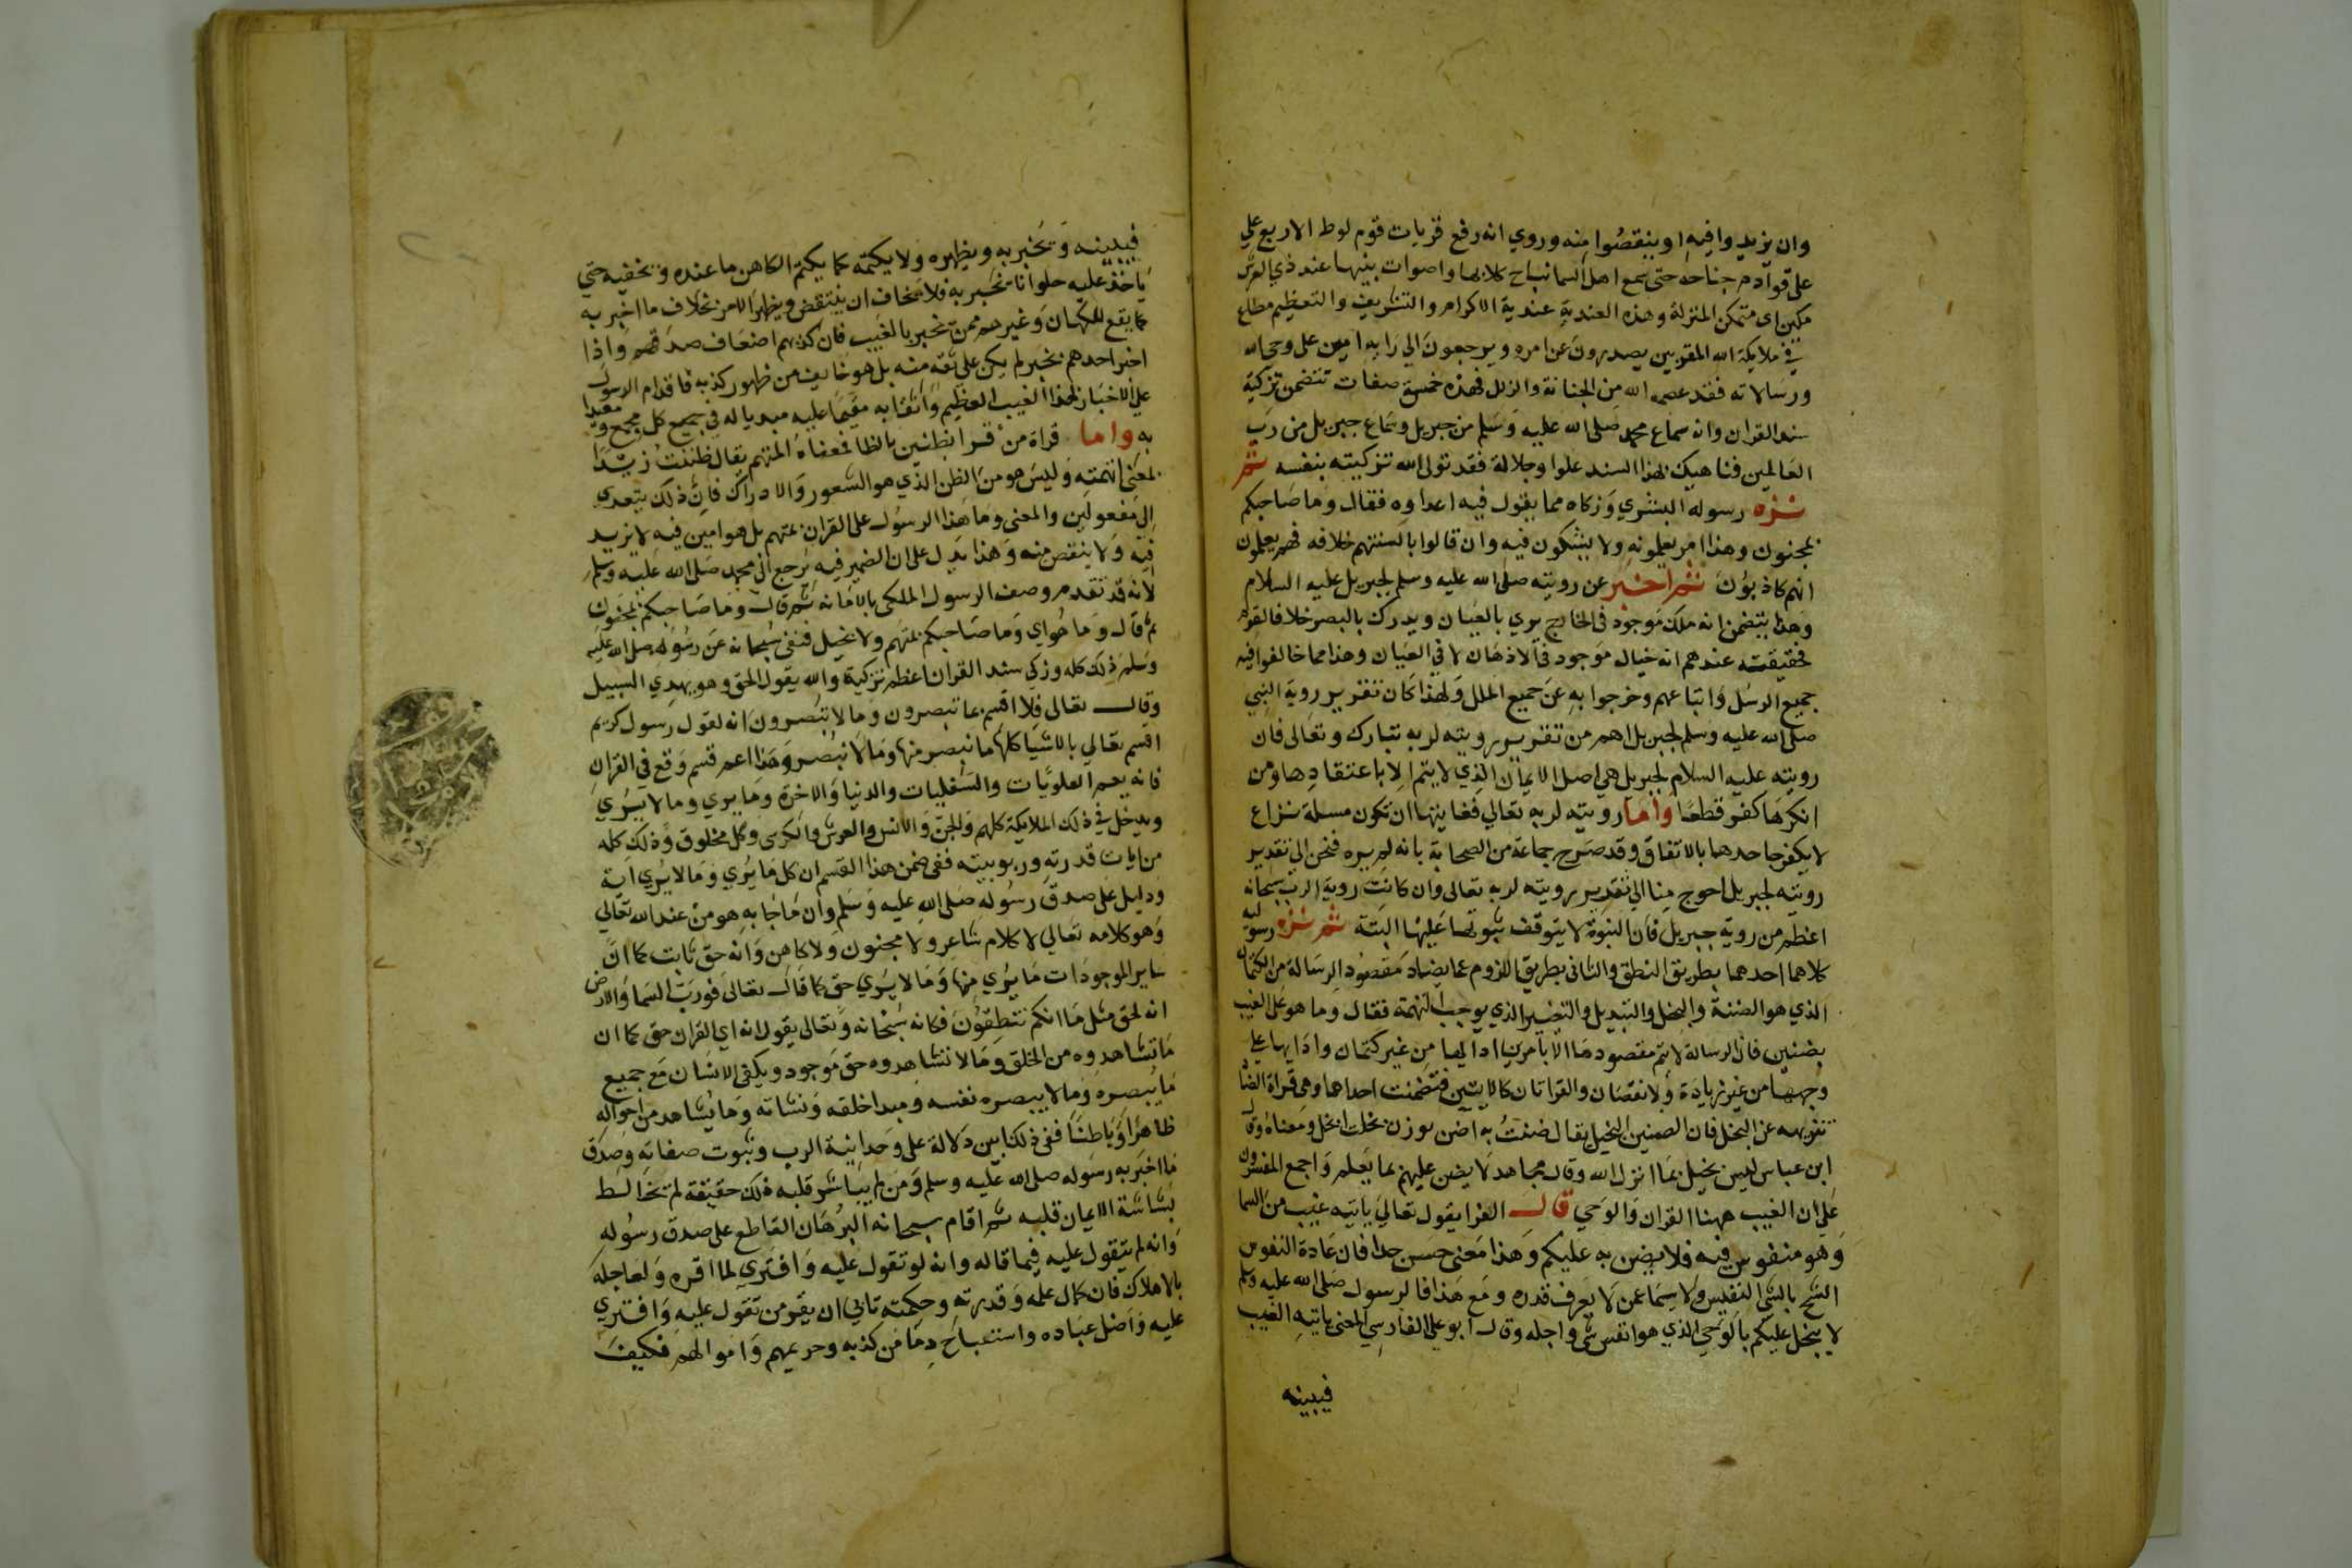 وان يزيدوا فيه او ينقصوا منه وروي انه رفع قريات قوم لوط الاربع علي
علي قوادم جناحه حتي سمع اهل السما نباح كلابها واصوات بنيها عند ذي العرش
مكين اي متمكن المنزلة وهذه العندية عندية الاكرام والتشريف والتعظيم مطاع
في ملايكة الله المقربين يصدرون عن امره ويرجعون الي رايه امين علي وحي الله
ورسالاته فقد عصمه الله من الخيانة والزلل فهذه خمسة صفات تتضمن تزكية
سند القران وانه سماع محمد صلي الله عليه وسلم من جبريل وسماع جبريل من رب
العالمين فناهيك بهذا السند علوا وجلالة فقد تولي الله تزكيته بنفسه ثم
نزه رسوله البشري وزكاه مما يقول فيه اعداوه فقال وما صاحبكم
بمجنون وهذا امر يعلمونه ولا يشكون فيه وان قالوا بالسنتهم خلافه فهم يعلمون
انهم كاذبون ثم اخبر عن رويته صلي الله عليه وسلم لجبريل عليه السلام
وهذا يتضمن انه ملك موجود في الخارج يري بالعيان ويدرك بالبصر خلافا لقوم
حقيقته عندهم انه خيال موجود في الاذهان لا في العيان وهذا مما خالفوا فيه
جميع الرسل واتباعهم وخرجوا به عن جميع الملل ولهذا كان تقرير روية النبي
صلي الله عليه وسلم لجبريل اهم من تقرير رويته لربه تبارك وتعالي فان
رويته عليه السلام لجبريل هي اصل الايمان الذي لا يتم الا باعتقادها ومن
انكرها كفر قطعا واما رويته لربه تعالي فغايتها ان تكون مسلة نزاع
لا يكفر جاحدها بالاتفاق وقد صرح جماعة من الصحابة بانه لم يره فنحن الي تقدير
رويته لجبريل احوج منا الي تقدير رويته لربه تعالي وان كانت روية الرب سبحانه
اعظم من روية جبريل فان النبوة لا يتوقف ثبوتها عليها البتة ثم نزه رسوليه
كلاهما احدهما بطريق النطق والثاني بطريق اللزوم عما يضاد مقصود الرسالة من الكتمان
الذي هو الضنة والبخل والتبديل والتغيير الذي يوجب التهمة فقال وما هو علي الغيب
بضنين فان الرسالة لا يتم مقصودها الا بامرين ادايها من غير كتمان وادايها علي
وجهها من غير زيادة ولا نقصان والقراتان كالايتين فتضمنت احداهما وهي قراة الضاد
تنزيهه عن البخل فان الضنين البخيل يقال ضننت به اضن بوزن بخلت ابخل ومعناه وقال
ابن عباس ليس بخيل بما انزل الله وقال مجاهد لا يضن عليهم بما يعلم واجمع المفسرون
علي ان الغيب ههنا القران والوحي قال الفرا يقول تعالي ياتيه غيب من السما
وهو منفوس فيه فلا يضن به عليكم وهذا معني حسن جدا فان عادة النفوس
الشح بالشي النفيس ولا سيما عمن لا يعرف قدره ومع هذا فالرسول صلي الله عليه وسلم
لا يبخل عليكم بالوحي الذي هو انفس شي واجله وقال ابو علي الفارسي المعني ياتيه الغيب
فيبينه
فيبينه ويخبر به ويظهره ولا يكتمه كما يكتم الكاهن ما عنده ويخفيه حتي
ياخذ عليه حلوانا يخبر به فلا يخاف ان ينتقض ويظهر الامر بخلاف ما اخبر به
كما يقع للكهان وغيرهم ممن يخبر بالغيب فان كذبهم اضعاف صدقهم واذا
اخبر احدهم بخبر لم يكن علي ثقة منه بل هو خايف من ظهور كذبه فاقدام الرسول
علي الاخبار بهذا الغيب العظيم واثقا به مقيما عليه مبديا له في جميع كل مجمع ومعيدا
به واما قراة من قرا بظنين بالظا فمعناه المتهم يقال ظننت زيدا
بمعني اتهمته وليس هو من الظن الذي هو الشعور والادراك فان ذلك يتعدي
الي مفعولين والمعني وما هذا الرسول علي القران بمتهم بل هو امين فيه لا يزيد
فيه ولا ينقص منه وهذا يدل علي ان الضمير فيه يرجع الي محمد صلي الله عليه وسلم
لانه قد تقدم وصف الرسول الملكي بالامانة ثم قال وما صاحبكم بمجنون
ثم قال وما هو اي وما صاحبكم بمتهم ولا بخيل فنفي سبحانه عن رسوله صلي الله عليه
وسلم ذلك كله وزكي سند القران اعظم تزكية والله يقول الحق وهو يهدي السبيل
وقال تعالي فلا اقسم بما تبصرون وما لا تبصرون انه لقول رسول كريم
اقسم تعالي بالاشيا كلها ما نبصر منها وما لا نبصر وهذا اعم قسم وقع في القران
فانه يعم العلويات والسفليات والدنيا والاخرة وما يري وما لا يري
ويدخل في ذلك الملايكة كلهم والجن والانس والعرش والكرسي وكل مخلوق وذلك كله
من ايات قدرته وربوبيته ففي ضمن هذا القسم ان كل ما يري وما لا يري اية
ودليل علي صدق رسوله صلي الله عليه وسلم وان ما جا به هو من عند الله تعالي
وهو كلامه تعالي لا كلام شاعر ولا مجنون ولا كاهن وانه حق ثابت كما ان
ساير الموجودات ما يري منها وما لا يري حق كما قال تعالي فورب السما والارض
انه لحق مثل ما انكم تنطقون فكانه سبحانه وتعالي يقول انه اي القران حق كما ان
ما تشاهدوه من الخلق وما لا تشاهدوه حق موجود ويكفي الانسان مع جميع
ما يبصره وما لا يبصره نفسه ومبدا خلقه ونشاته وما يشاهد من احواله
ظاهرا وباطنا ففي ذلك ابين دلالة علي وحدانية الرب وثبوت صفاته وصدق
ما اخبر به رسوله صلي الله عليه وسلم ومن لم يباشر قلبه ذلك حقيقة لم تخالط
بشاشة الايمان قلبه ثم اقام سبحانه البرهان القاطع علي صدق رسوله
وانه لم يتقول عليه فيما قاله وانه لو تقول عليه وافتري لما اقره ولعاجله
بالاهلاك فان كمال علمه وقدرته وحكمته تابي ان يقر من تقول عليه وافتري
عليه واضل عباده واستباح دما من كذبه وحريمهم واموالهم فكيف